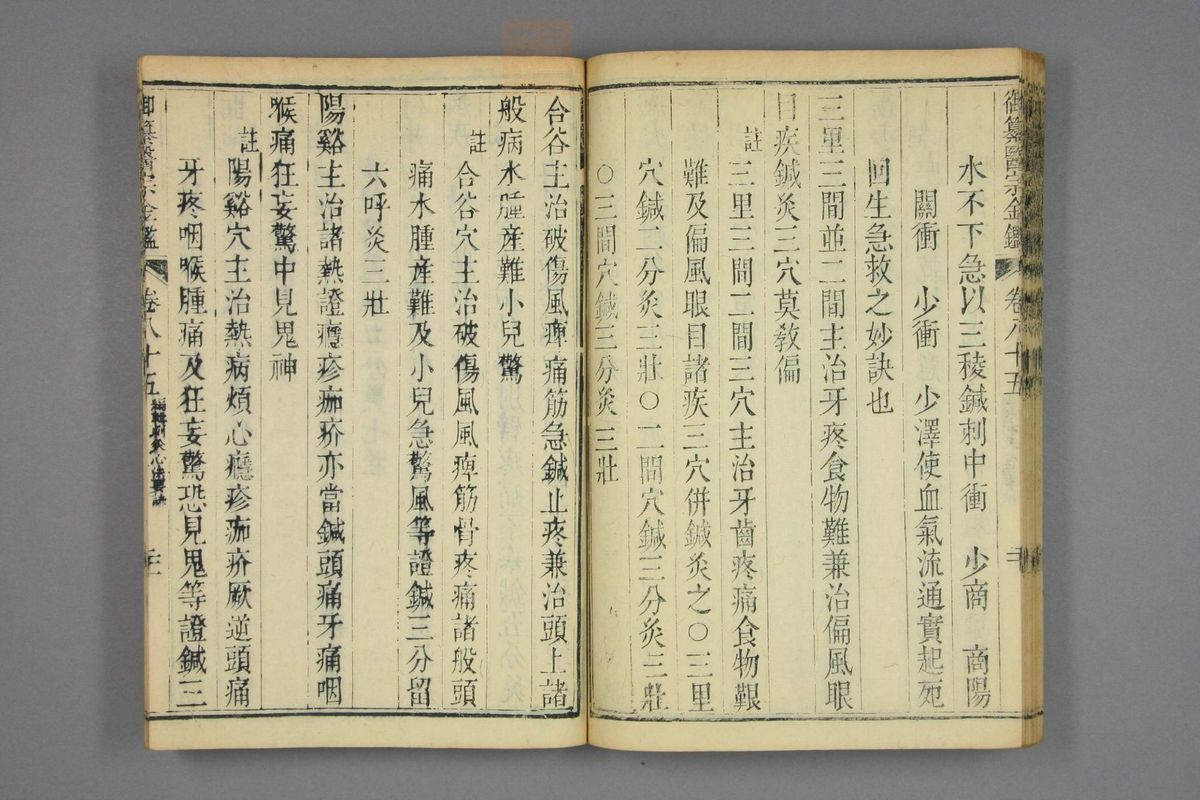 御纂醫宗金鑑 卷八十五
水不下急以三稜鍼刺中衝　少商　商陽
關衝　少衝　少澤使血氣流通實起死
回生急救之妙訣也
三里三間並二間主治牙疼食物難兼治偏風眼
目疾鍼灸三穴莫教偏
註 三里三間二間三穴主治牙齒疼痛食物艱
難及偏風眼目諸疾三穴併鍼灸之○三里
穴鍼二分灸三壯○二間穴鍼三分灸三壯
○三間穴鍼三分灸三壯
合谷主治破傷風痺痛筋急鍼止疼兼治頭上諸
般病水腫産難小兒驚
註 合谷穴主治破傷風風痺筋骨疼痛諸般頭
痛水腫産難及小兒急驚風等證鍼三分留
六呼灸三壯
陽谿主治諸熱證癮疹痂疥亦當鍼頭痛牙痛咽
喉痛狂妄驚中見鬼神
註 陽谿穴主治熱病煩心癮疹痂疥厥逆頭痛
牙疼咽喉腫痛及狂妄驚恐見鬼等證鍼三
御纂醫宗金鑑 卷八十五 編輯刺灸心法要訣